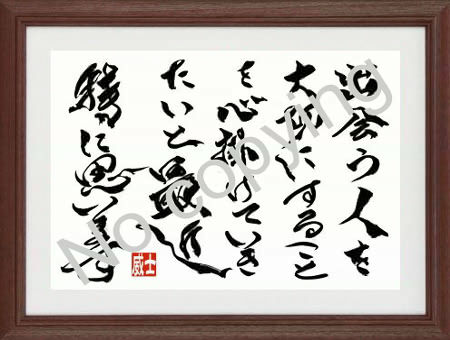 出会う人を
大切にすること
を心掛けていき
たいと最近
に思います
威士
No copying